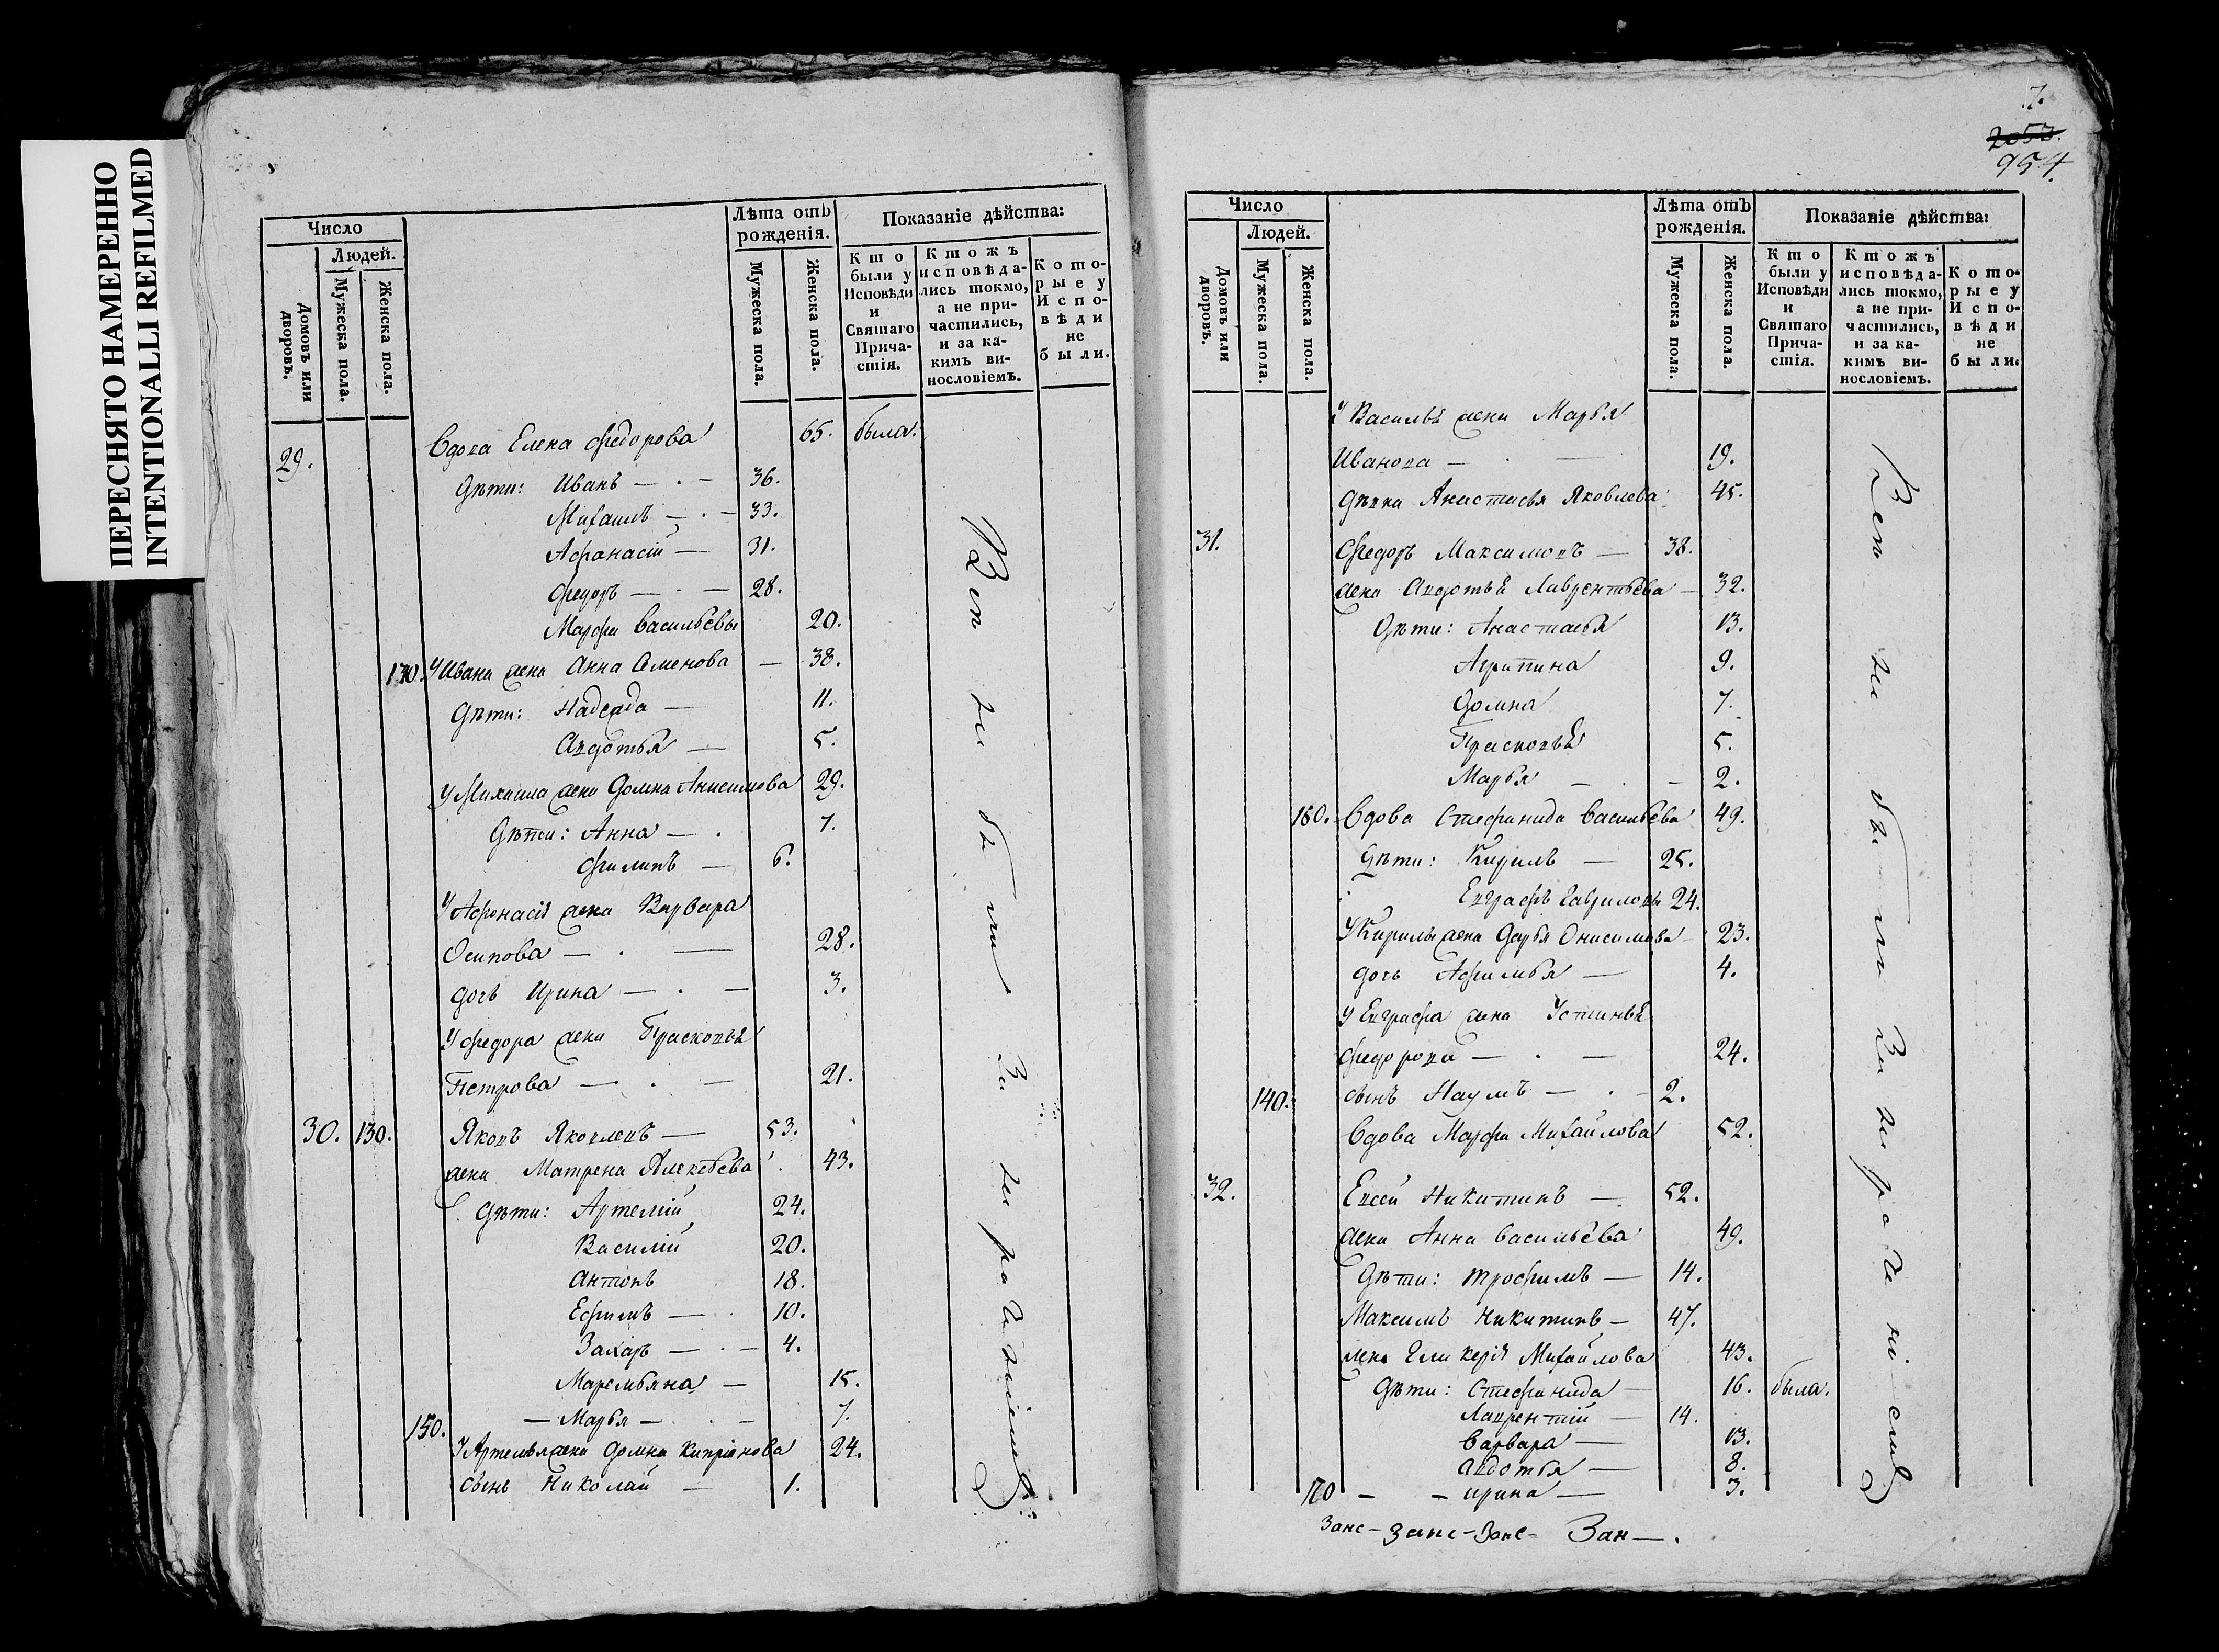 ПЕРЕСНЯТО НАМЕРЕННО
INTENTIONALLI REFILMED
Число
Людей.
Домовъ или дворовъ.
Мужеска пола.
Женска пола.
Лѣта отъ рожденія.
Мужеска пола.
Женска пола.
Показаніе дѣйства:
Кто были у Исповѣди и Святаго Причастія.
Ктожъ исповѣдались токмо, а не причастились, и за какимъ винословіемъ.
Которые у Исповѣди не были.
29. Вдова Елена Федорова 65. была.
Дѣти: Иванъ — 36.
Михаилъ — 33.
Афанасій — 31.
Федоръ — 28.
Марфа Васильевы 20.
130. У Ивана жена Анна Семенова — 38.
Дѣти: Надежда — 11.
Авдотья — 5.
У Михаила жена Домна Анисимова 29.
Дѣти: Анна — 7.
Филипъ — 6.
У Афонасія жена Варвара
Осипова — 28.
дочь Ирина — 3.
У Федора жена Прасковья
Петрова — 21.
30. 130. Яковъ Яковлевъ — 53.
жена Матрена Алексѣева 43.
Дѣти: Артемій 24.
Василій 20.
Антонъ 18.
Ефимъ — 10.
Захаръ — 4.
Маремьяна — 15.
150. — Марья — 7.
У Артемья жена Домна Кипріянова 24.
сынъ Николай — 1.
Вси не были за нераченіемъ
7.
2053.
954.
Число
Людей.
Домовъ или дворовъ.
Мужеска пола.
Женска пола.
Лѣта отъ рожденія.
Мужеска пола.
Женска пола.
Показаніе дѣйства:
Кто были у Исповѣди и Святаго Причастія.
Ктожъ исповѣдались токмо, а не причастились, и за какимъ винословіемъ.
Которые у Исповѣди не были.
У Василья жена Марья
Иванова — 19.
Дѣвка Анастасья Яковлева 45.
31. Федоръ Максимовъ — 38.
жена Авдотья Лаврентьева — 32.
Дѣти: Анастасья 13.
Агрипина 9.
Домна 7.
Прасковья 5.
Марья — 2.
160. Вдова Стефанида Васильева 49.
Дѣти: Кирилъ — 25.
Евграфъ Гавриловы 24.
У Кирилы жена Дарья Онисимова 23.
дочь Афимья — 4.
У Евграфа жена Устинья
Федорова — 24.
140. сынъ Наумъ — 2.
Вдова Марфа Михайлова 52.
32. Евсей Никитинъ — 52.
жена Анна Васильева 49.
Дѣти: Трофимъ — 14.
Максимъ Никитинъ — 47.
жена Гликерія Михайлова 43.
Дѣти: Стефанида — 16. была.
Лаврентій — 14.
Варвара — 13.
Авдотья — 8.
170 — — Ирина — 3.
Вси не были за нераченіемъ